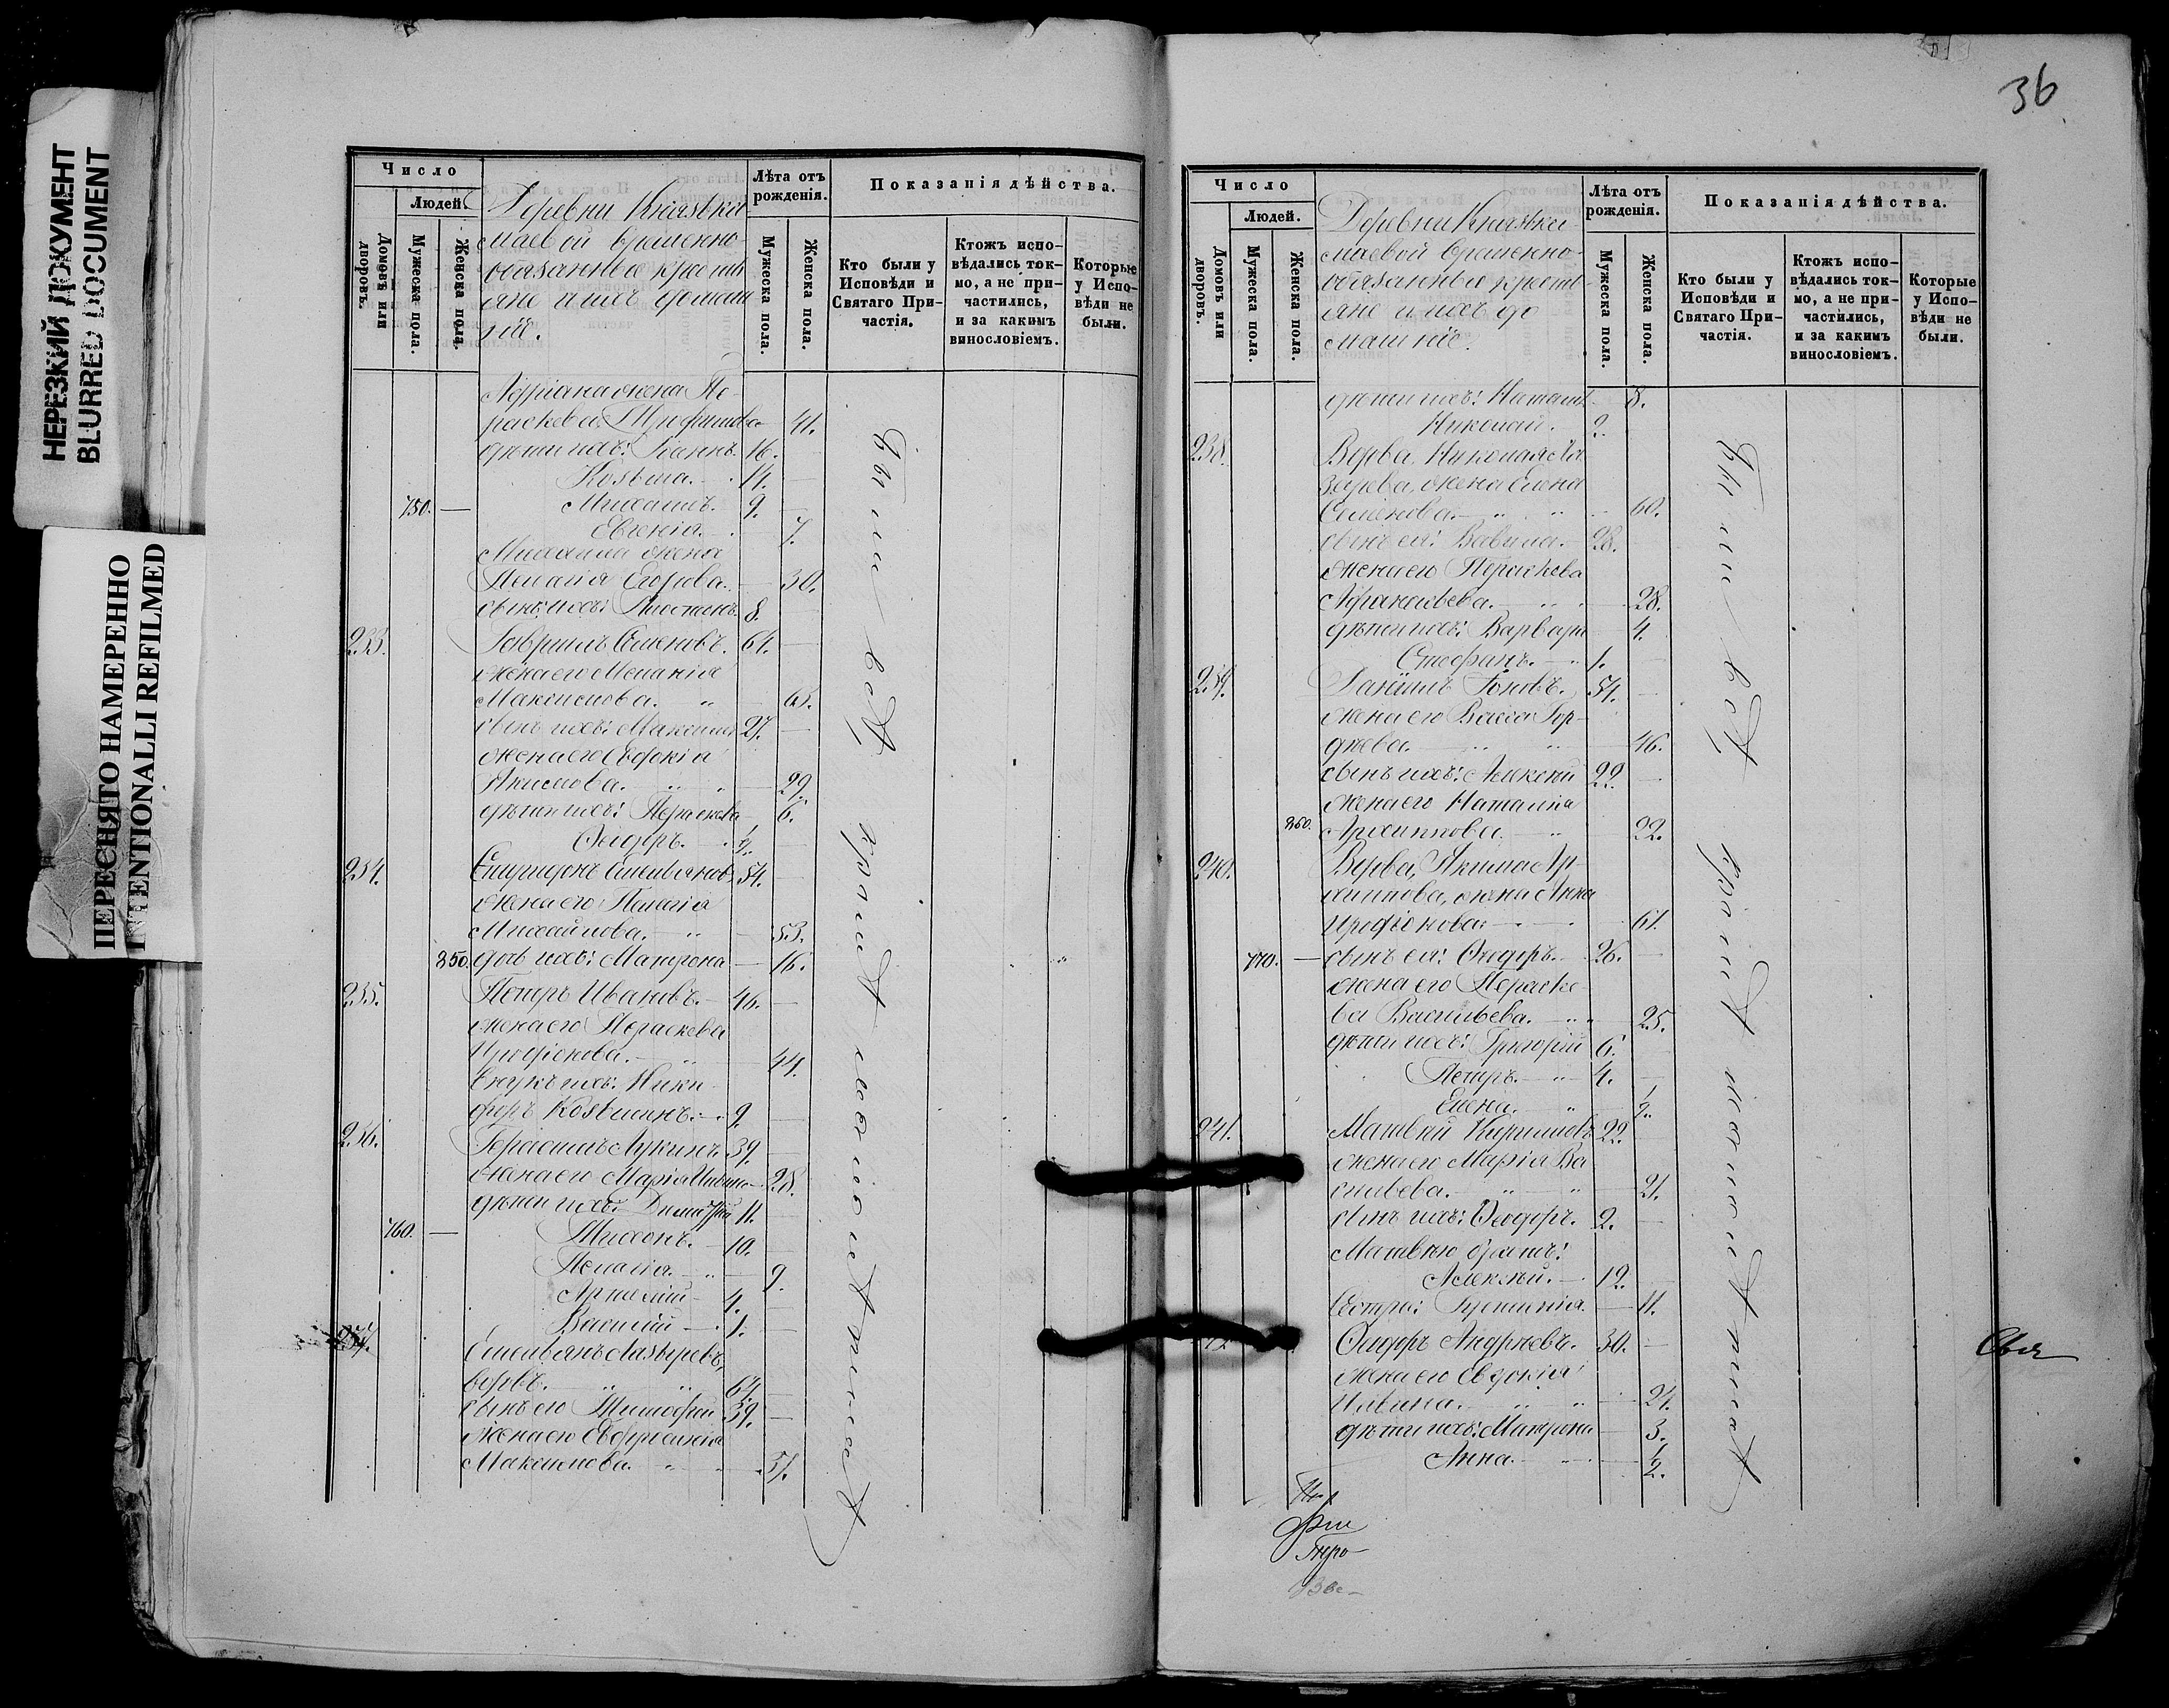 НЕРЕЗКИЙ ДОКУМЕНТ
BLURRED DOCUMENT
ПЕРЕСНЯТО НАМЕРЕННО
INTENTIONALLI REFILMED
Число
Людей.
Домовъ или дворовъ.
Мужеска пола.
Женска пола.
Деревни
маевой временно-
обязанные кресть
яне и ихъ домаш
ніе.
Лѣта отъ рожденія.
Мужеска пола.
Женска пола.
Показанія дѣйства.
Кто были у Исповѣди и Святаго Причастія.
Ктожъ исповѣдались токмо, а не причастились, и за какимъ винословіемъ.
Которые у Исповѣди не были.
Адріана жена Па-
раскева 41.
дѣти ихъ: Іоаннъ. 16.
Козьма. 14.
750. Михаилъ. 9.
Евгенія. 7.
Михаила жена
Пелагія Егорова. 30.
сынъ ихъ: 8.
233. Гавріилъ Семеновъ. 61.
жена его Меланія
Максимова. 63.
сынъ ихъ: Максимъ 27.
жена его Евдокія
Акимова. 29.
дѣти ихъ: Параскева 6.
Ѳеодоръ. 1/2.
234. Емельяновъ 54.
жена его Пелагія
Михайлова. 53.
850. дочь ихъ: Матрона 16.
235. Петръ Ивановъ. 46.
жена его Параскева
Иродіонова. 44.
внукъ ихъ: Ники-
форъ Козьминъ. 9.
236. Герасимъ Лукинъ. 39.
жена его Марія 28.
дѣти ихъ: Димитрій 11.
760. Тихонъ. 10.
Пелагія. 9.
4.
Василій 1.
237. Емельянъ Лазаревъ,
вдовъ. 64.
сынъ его Тимофей 39.
жена его Евфросинія
Максимова. 37.
Были всѣ
36
Число
Людей.
Домовъ или дворовъ.
Мужеска пола.
Женска пола.
Деревни
маевой временно-
обязанные кресть-
яне и ихъ до
машніе.
Лѣта отъ рожденія.
Мужеска пола.
Женска пола.
Показанія дѣйства.
Кто были у Исповѣди и Святаго Причастія.
Ктожъ исповѣдались токмо, а не причастились, и за какимъ винословіемъ.
Которые у Исповѣди не были.
дѣти ихъ: Наталія 8.
Николай. 2.
238. Вдова, Николая Ла
зарева, жена Елена
Семенова. 60.
сынъ ея: Вавила. 28.
жена его Параскева
Афанасьева. 28.
дѣти ихъ: Варвара 4.
Стефанъ. 1.
239. Даніилъ Іоновъ. 54.
жена его Васса Гор-
дѣева. 46.
сынъ ихъ: Алексѣй 22.
жена его Наталія
860. Архиппова. 22.
240. Вдова, Акима Ар-
хиппова, жена Анна
Иродіонова. 61.
770. сынъ ея: Ѳеодоръ. 26.
жена его Параске-
ва Васильева. 25.
дѣти ихъ: Григорій 6.
Петръ. 4.
Елена. 1/2.
241. Матвѣй Кирилловъ 22.
жена его Марія Ва
сильева. 21.
сынъ ихъ: Ѳеодоръ. 2.
Матвѣю братъ:
Алексѣй. 12.
Сестра: 11.
Ѳеодоръ Андреевъ. 30.
жена его Евдокія
Ильина. 24.
дѣти ихъ: Матрона 3.
Анна. 1/2.
Были всѣ